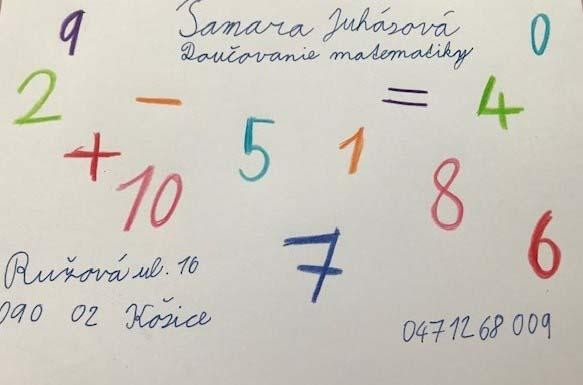 Samara Juhásová
Doučovanie matematiky
9
0
2 - = 4
+ 5 1
10 8
7 6
Ružová ul. 16
090 02 Košice
0471268 009